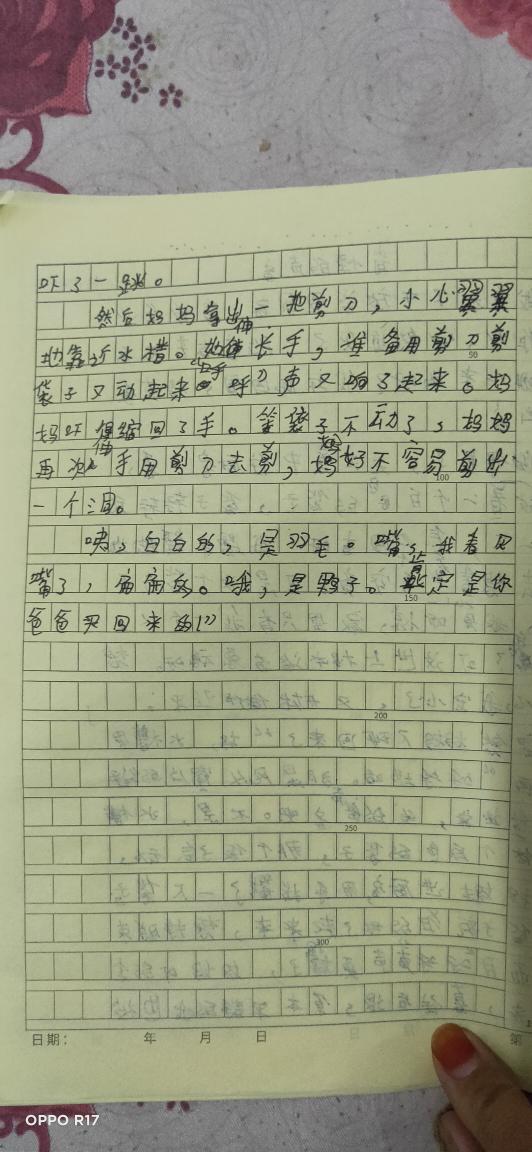 吓了一跳。
然后妈妈拿出一把剪刀，小心翼翼
地靠近水槽。她伸长手，准备用剪刀剪
袋子又动起来。呼声又响了起来。妈
妈吓得缩回了手。等袋子不动了，妈妈
再次伸手用剪刀去剪，妈妈好不容易剪出
一个洞。
咦，白白的，是羽毛。嘴，我看见
嘴了，扁扁的。哦，是鸭子。肯定是你
爸爸买回来的！”
50
100
150
200
250
300
日期： 年 月 日 第
OPPO R17